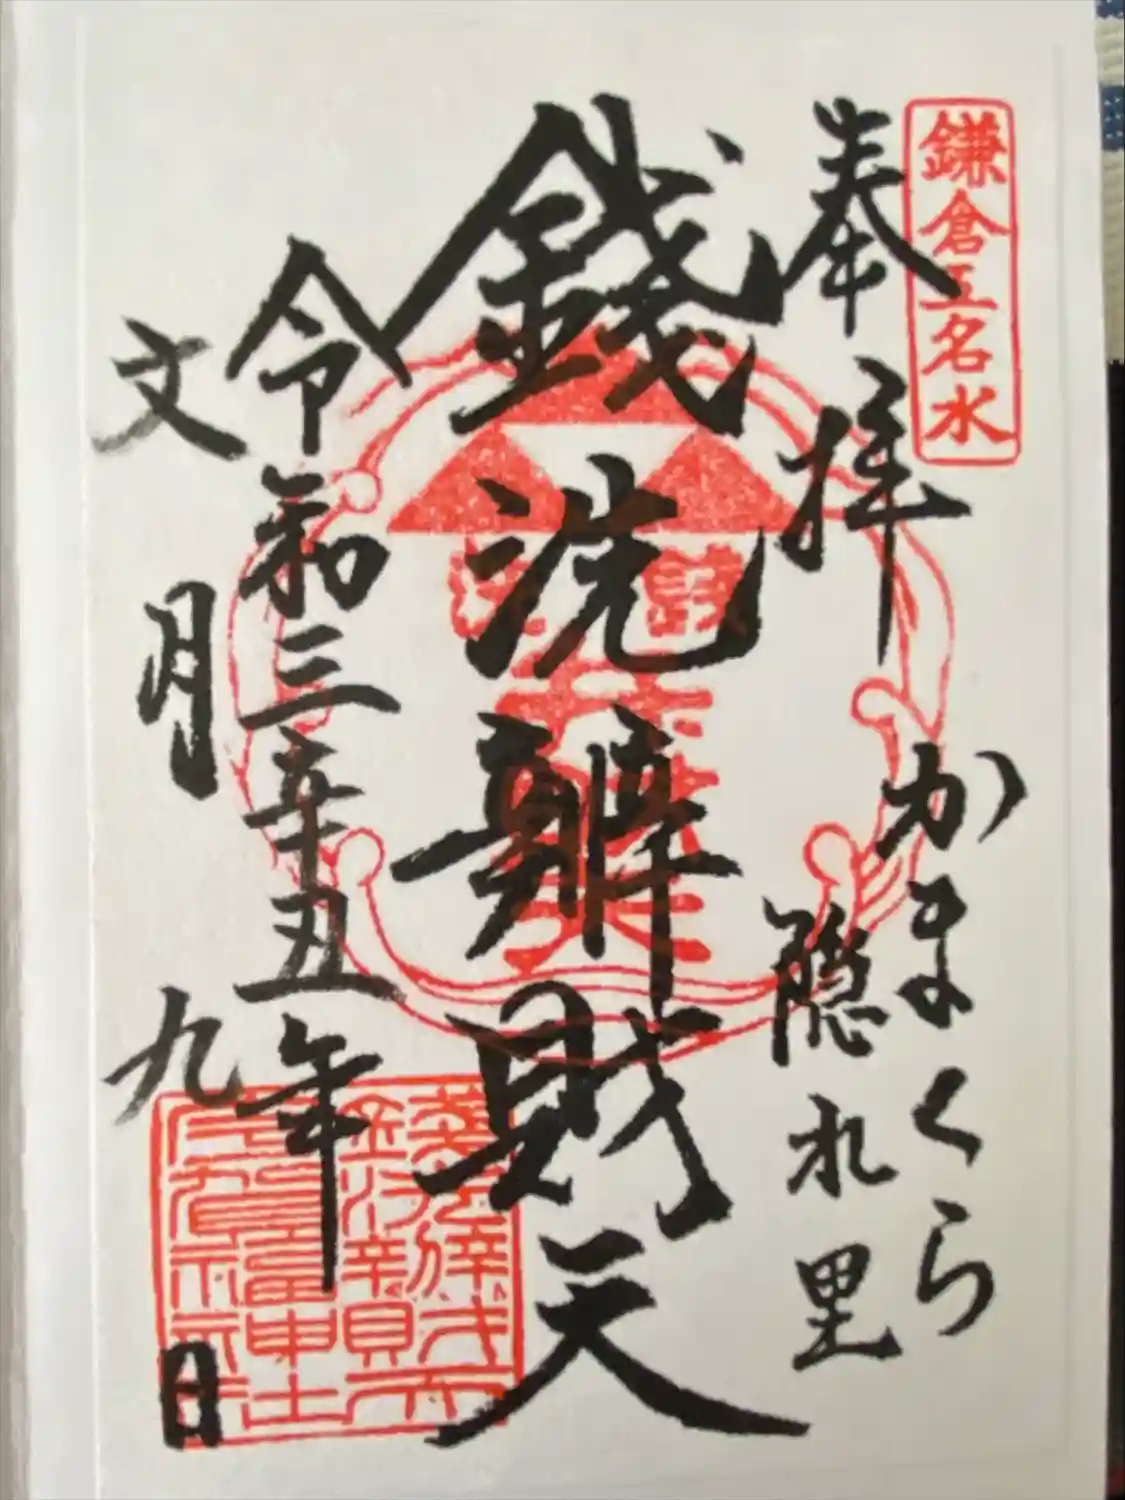 鎌倉五名水
奉拝
かまくら
隠れ里
銭洗辨財天
令和三辛丑年
文月
九日